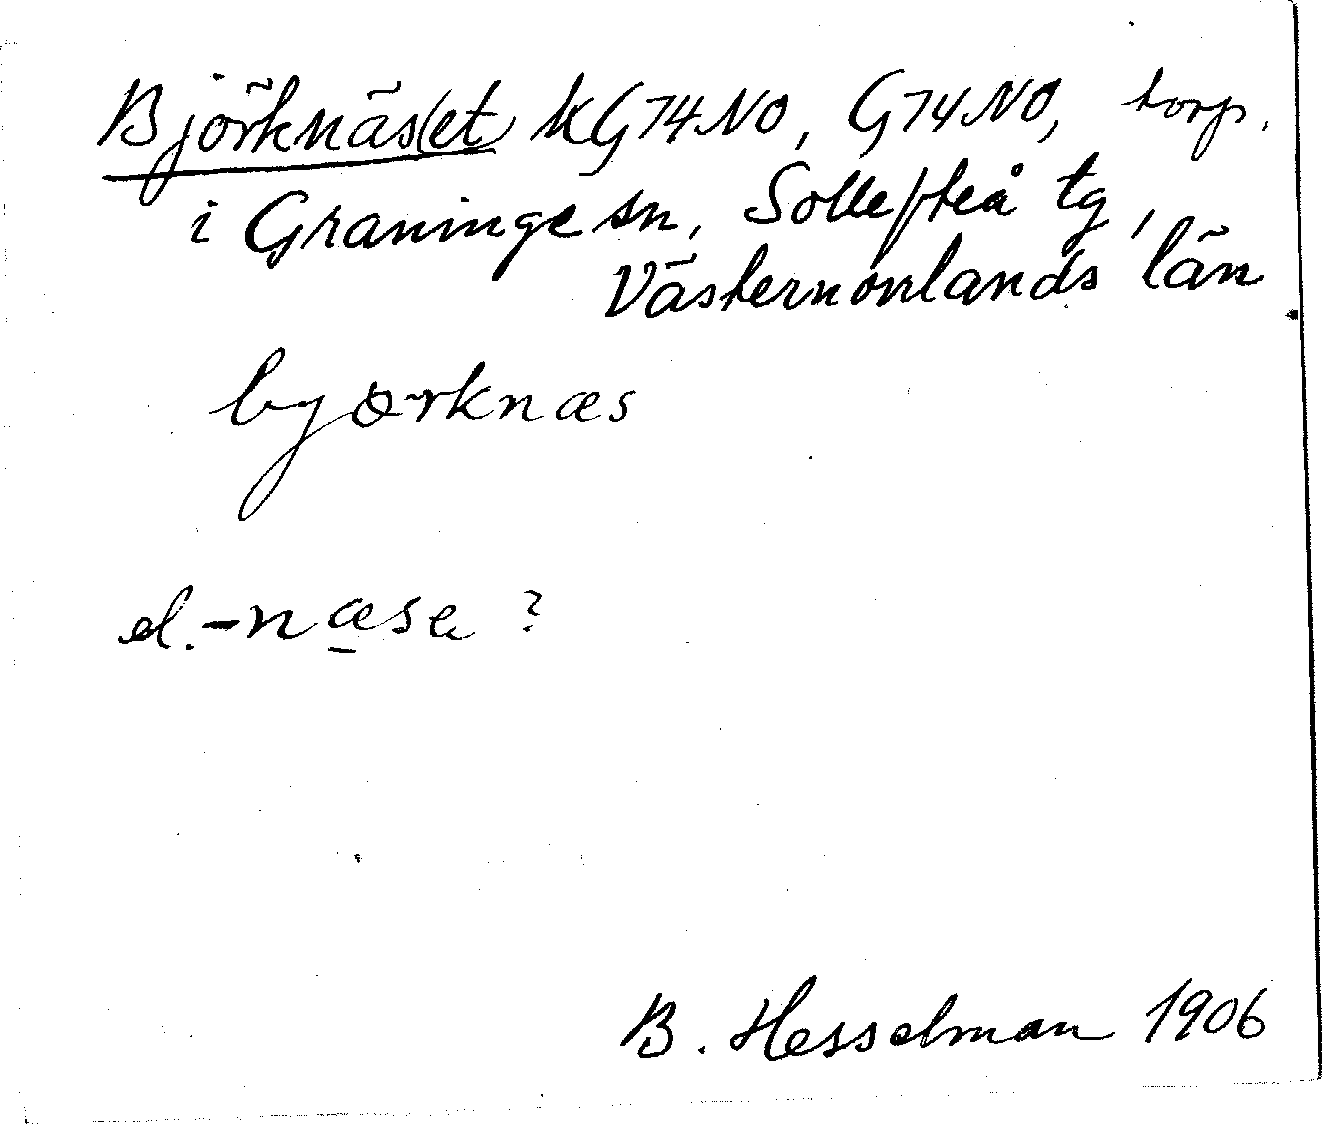 Björknäs(et) KG74NO, G74NO, torp.
i Graninge sn, Sollefteå tg,
Västernorrlands län
bjørknæs
el. -næsa ?
B. Hesselman 1906